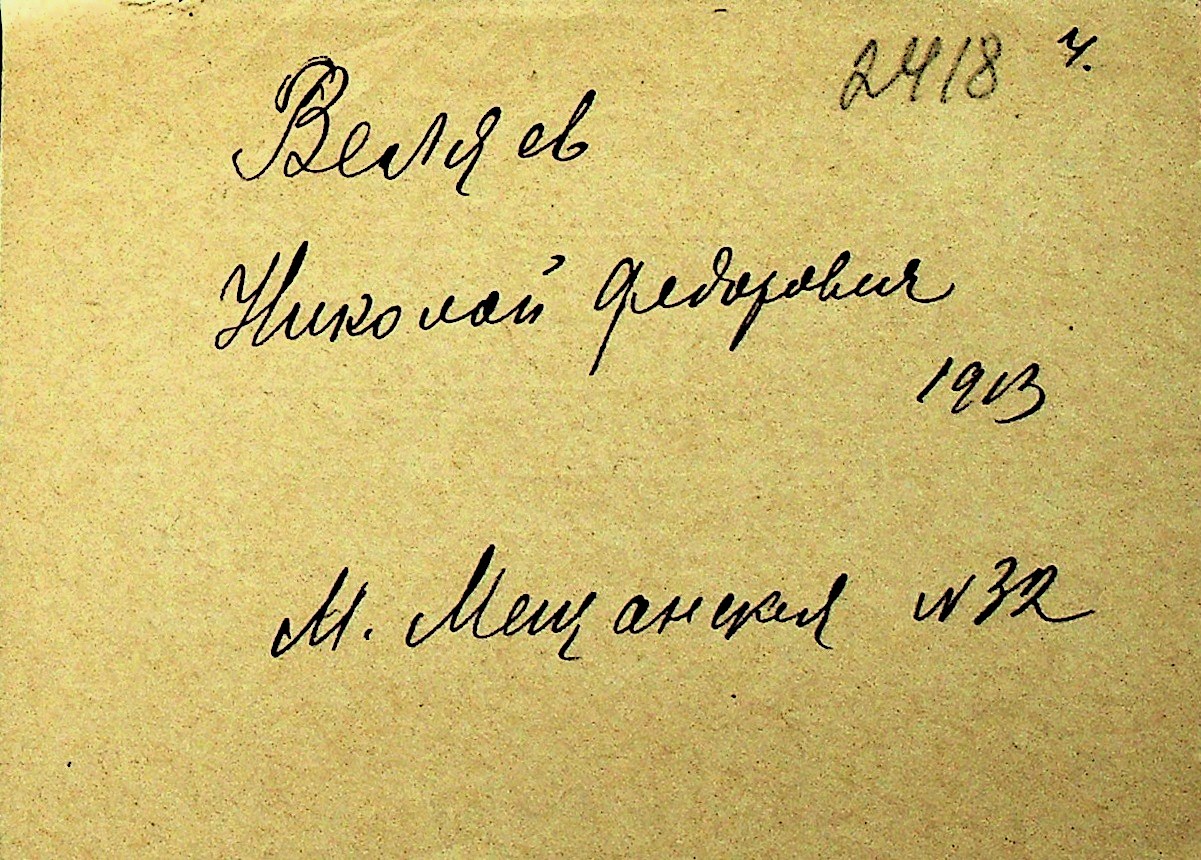 2418 ч.
Веляев
Николай Федорович
1913
М. Мещанская №32